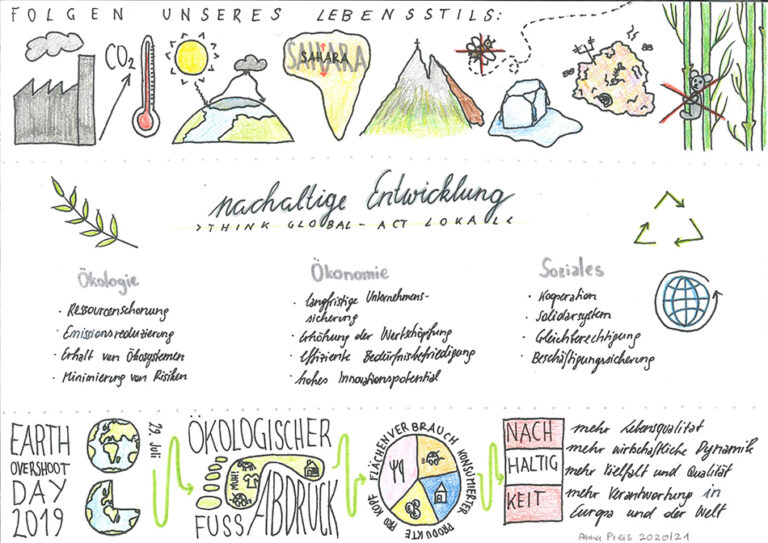 FOLGEN UNSERES LEBENSSTILS:
CO₂
SAHARA
SAHARA
nachaltige Entwicklung
>THINK GLOBAL - ACT LOKAL<
Ökologie
· Ressourcenschonung
· Emissionsreduzierung
· Erhalt von Ökosystemen
· Minimierung von Risiken
Ökonomie
· langfristige Unternehmens-
sicherung
· Erhöhung der Wertschöpfung
· effiziente Bedürfnisbefriedigung
· hohes Innovationspotential
Soziales
· Kooperation
· Solidarsystem
· Gleichberechtigung
· Beschäftigungssicherung
EARTH
OVERSHOOT
DAY
2019
29. Juli
ÖKOLOGISCHER
FUSS
ABDRUCK
FLÄCHENVERBRAUCH KONSUMIERTER PRODUKTE PRO KOPF
NACH
HALTIG
KEIT
mehr Lebensqualität
mehr wirtschaftliche Dynamik
mehr Vielfalt und Qualität
mehr Verantwortung in
Europa und der Welt
Anna Preis 2020/21